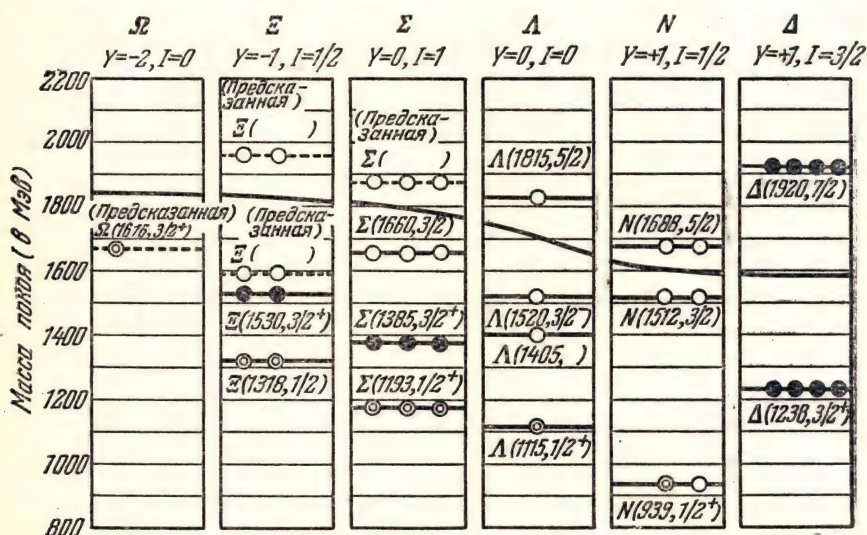 Ω Ξ Σ Λ N Δ
Y=-2, I=0 Y=-1, I=1/2 Y=0, I=1 Y=0, I=0 Y=+1, I=1/2 Y=+1, I=3/2
Масса покоя (в Мэв)
2200
2000
1800
1600
1400
1200
1000
800
(Предсказанная)
Ω(1616,3/2+)
(Предска-
занная)
Ξ( )
(Предска-
занная)
Ξ( )
Ξ(1530,3/2+)
Ξ(1318,1/2)
(Предска-
занная)
Σ( )
Σ(1660,3/2)
Σ(1385,3/2+)
Σ(1193,1/2+)
Λ(1815,5/2)
Λ(1520,3/2-)
Λ(1405, )
Λ(1115,1/2+)
N(1688,5/2)
N(1512,3/2)
N(939,1/2+)
Δ(1920,7/2)
Δ(1238,3/2+)